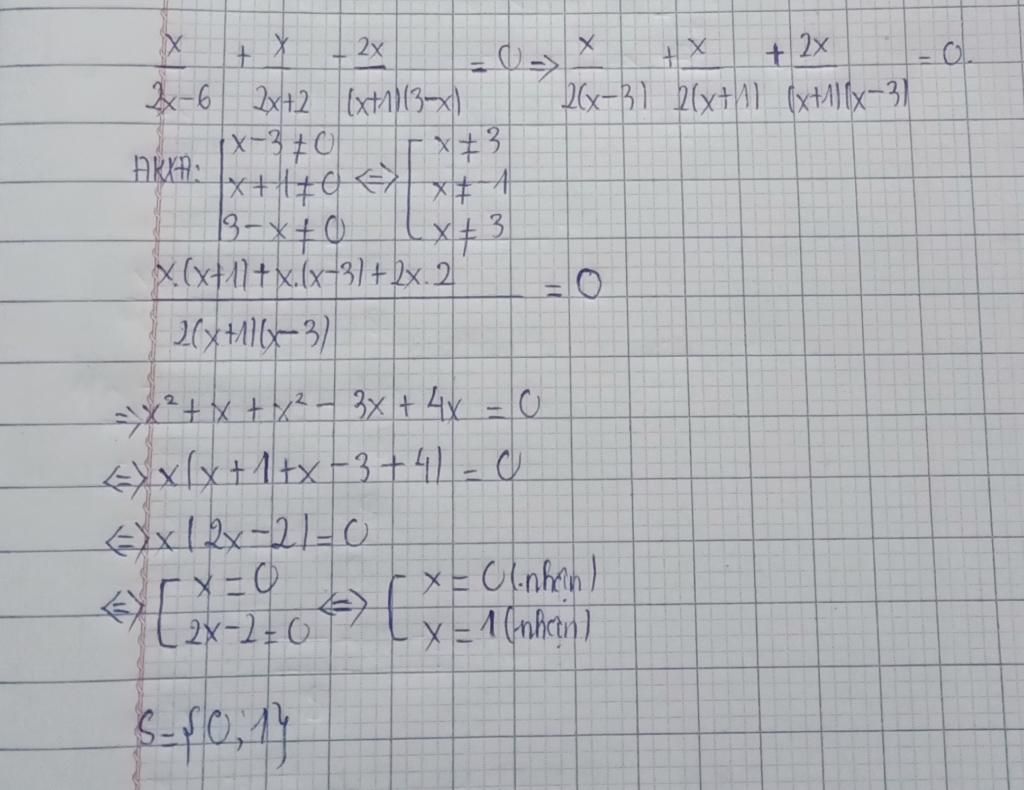 x/(2x-6) + x/(2x+2) - 2x/((x+1)(3-x)) = 0 => x/(2(x-3)) + x/(2(x+1)) + 2x/((x+1)(x-3)) = 0.
ĐKXĐ: x-3≠0 <=> [ x≠3
x+1≠0 x≠-1
3-x≠0 x≠3
(x.(x+1)+x.(x-3)+2x.2)/(2(x+1)(x-3)) = 0
=> x²+x+x²-3x+4x = 0
<=> x(x+1+x-3+4) = 0
<=> x(2x-2)=0
<=> [ x=0 <=> [ x=0 (nhận)
2x-2=0 x=1 (nhận)
S={0;1}